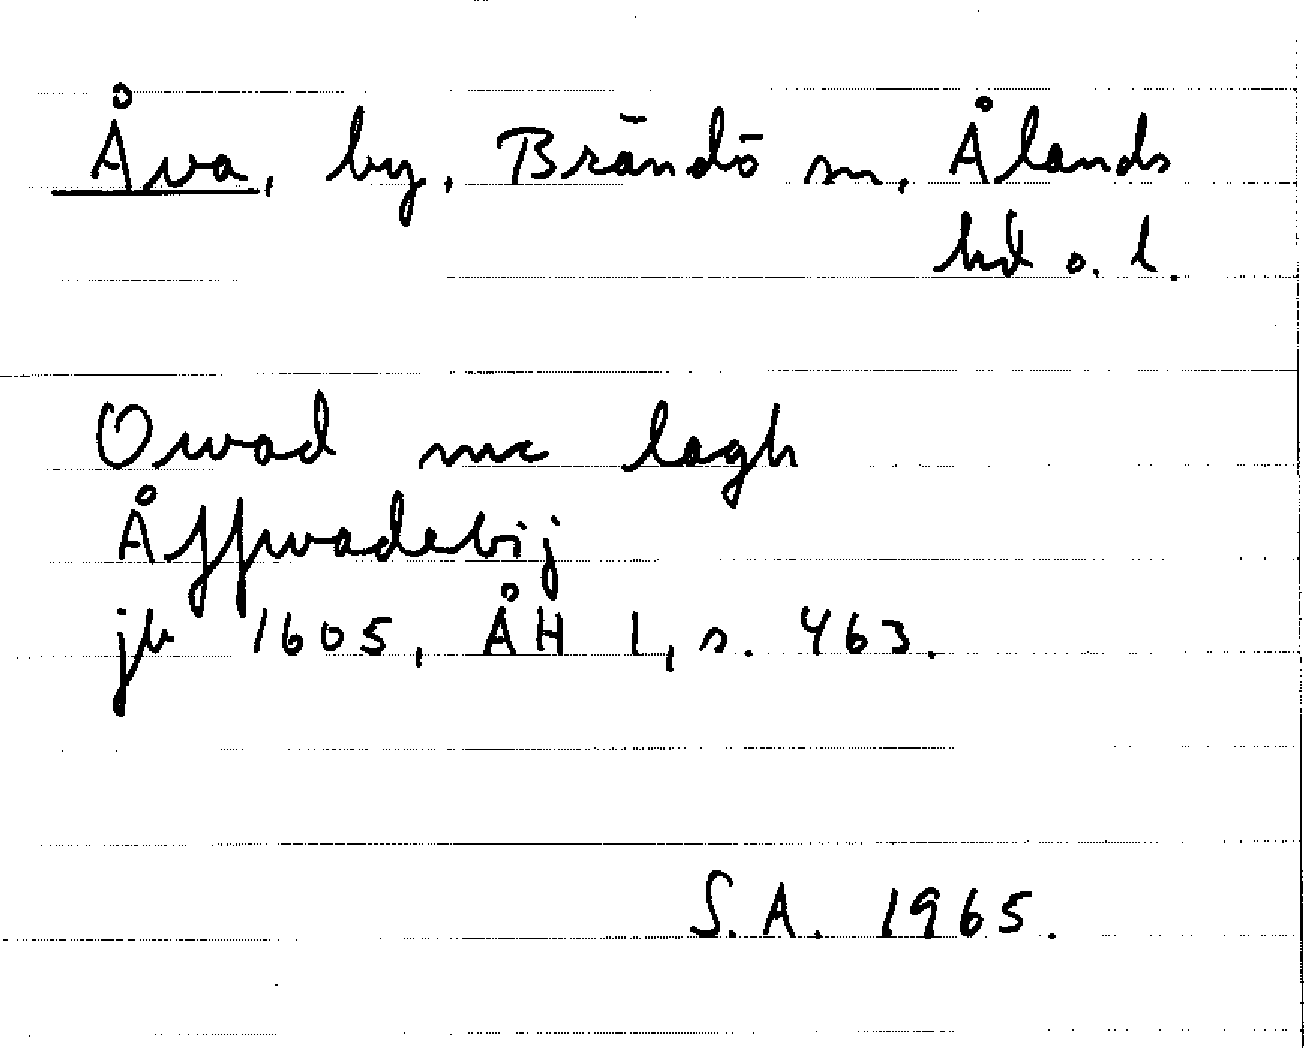 Åva, by, Brändö sn, Ålands
hd o. l.
Owad mc lagh
Åffwadebij
jb 1605, ÅH 1, s. 463.
S.A. 1965.